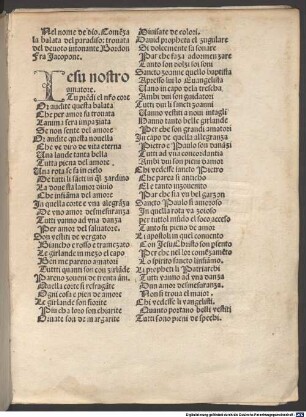 Nel nome de dio. Comẽza
la balata del paradiso: trouata
del deuoto intonante Bordon
Fra Jacopone.
Iesu nostro
amatore.
Tu prẽdi el nr̃o core
Or audite questa balata
Che per amor fu trouata
Lanima sera impaziata
Se non sente del amore
Or audite questa nouella
Che ve diro de vita eterna
Una lande tanta bella
Tutta piena del amore.
Una rota se fa in cielo
De tutti li sancti in q̃l zardino
La doue sta lamor diuio
Che infiãma del amore
In quella corte e vna alegrãza
De vno amor desmesuranza
Tutti vanno ad vna danza
Per amor del saluatore.
Son vestiti de vergato
Biancho e rosso e tramezato
Le girlande in mezo el capo
Ben me pareno amatori
Tutti quanti son con zoiãde
Pareno zoueni de trenta ãni
Quella corte si refragãte
Ogni cosa e pien de amore
Le girlande son fiorite
Piu cha loro son chiarite
Ornate son de margarite
Diuisate de colori.
Dauid propheta el zugulare
Si dolcemente fa sonare
Par che faza adormenzare
Tanto son dolzi soi soni
Sancto ioanne quello baptista
Apresso lo euangelista
Uano in capo dela trescha
Ambi dui son guidatori
Tutti dui li sancti ioanni
Uanno vestiti a noui intagli
Dãmo tanto belle girlande
Per che son grandi amatori
In capo de quella allegranza
Pietro e Paulo son danãzi
Tutti ad vna concordanza
Ambi dui son pieni damore
Chi vedesse sancto Pietro
Che parea si anticho
El e tanto inzouenito
Par che sia vn bel garzon
Sancto Paulo si amoroso
In quella rota va zoioso
per tutti el misso el foco acceso
Tanto fu pieno de amore
Li apostoli in quel conuento
Con Jesu Christo son spento
Per che nel lor comẽzamẽto
Lo spirito sancto linfiãmo.
Li propheti li Patriarchi
Tutti vanno ad vna danza
Dun amor desmesuranza.
Non si troua el maior.
Chi vedesse li vangelisti.
Quanto portano belli vestiti
Tutti sono pieni de specchi.